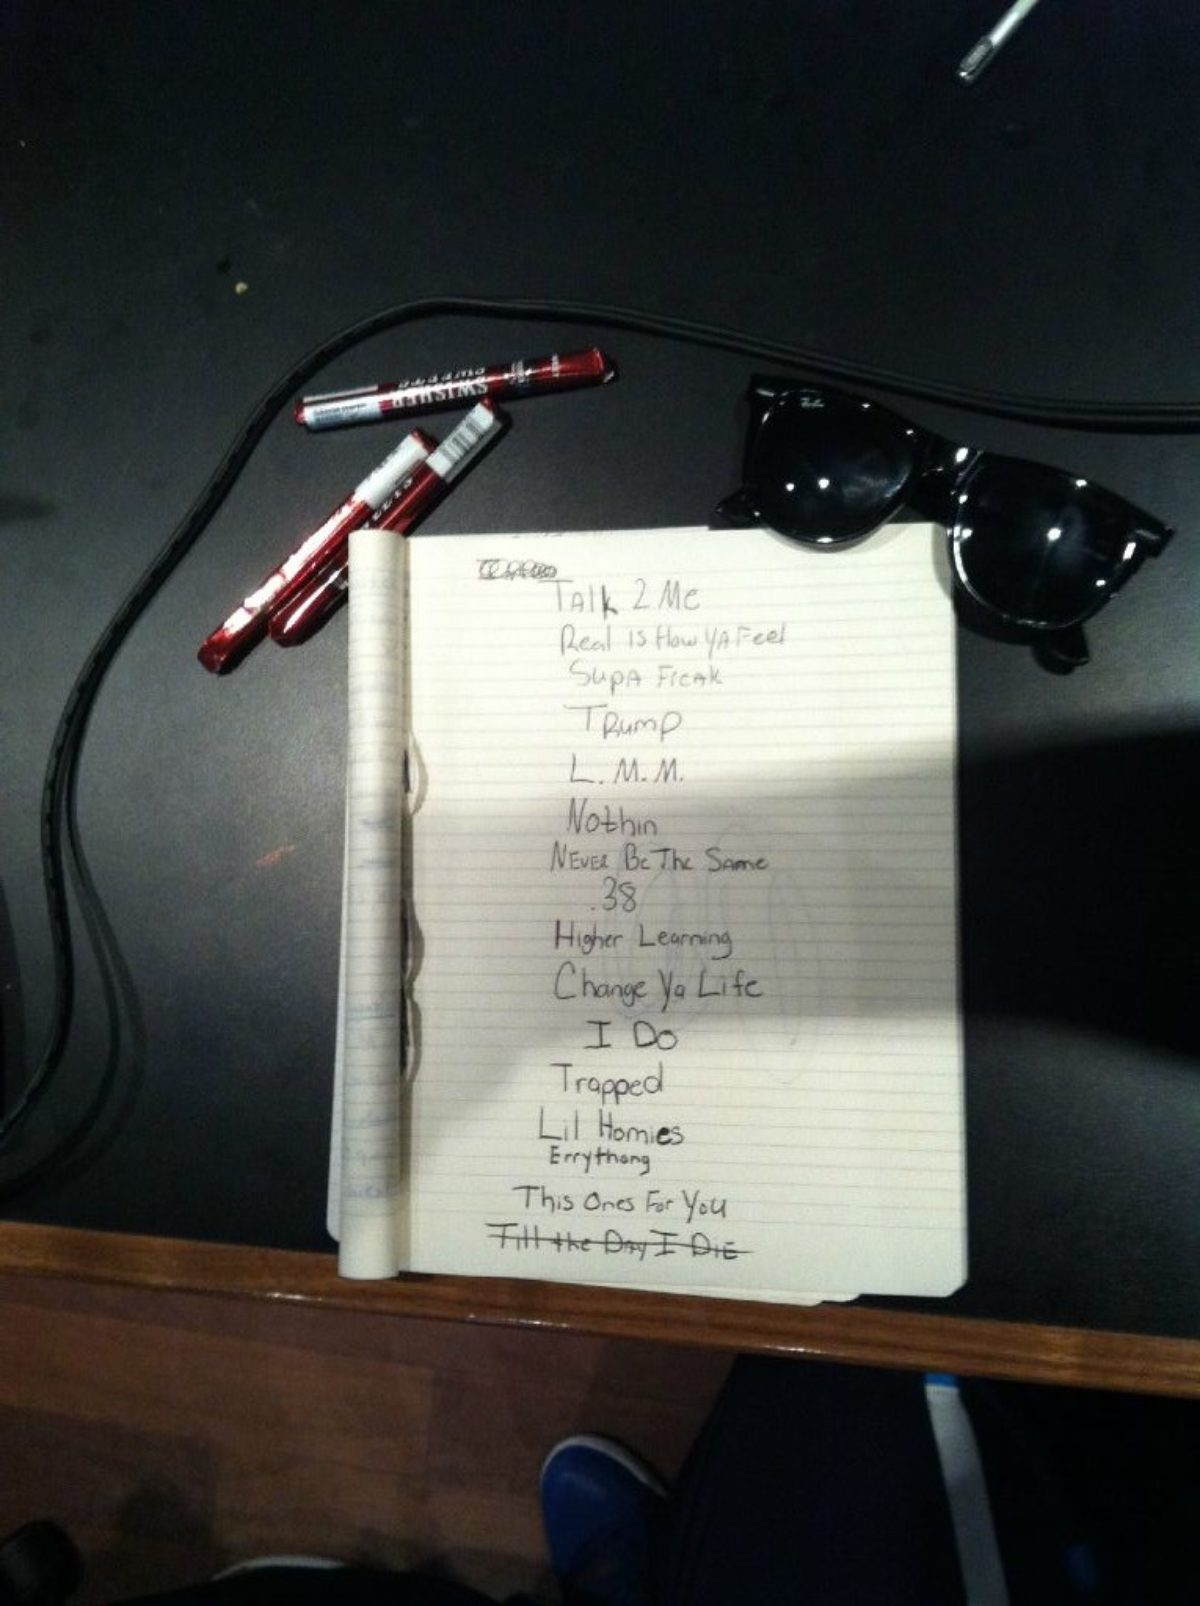 SWISHER
SWEETS
Talk 2 Me
Real is How YA Feel
Supa Freak
Trump
L. M. M.
Nothin
Never Be The Same
.38
Higher Learning
Change Ya Life
I Do
Trapped
Lil Homies
Errythang
This Ones For You
Till the Day I Die